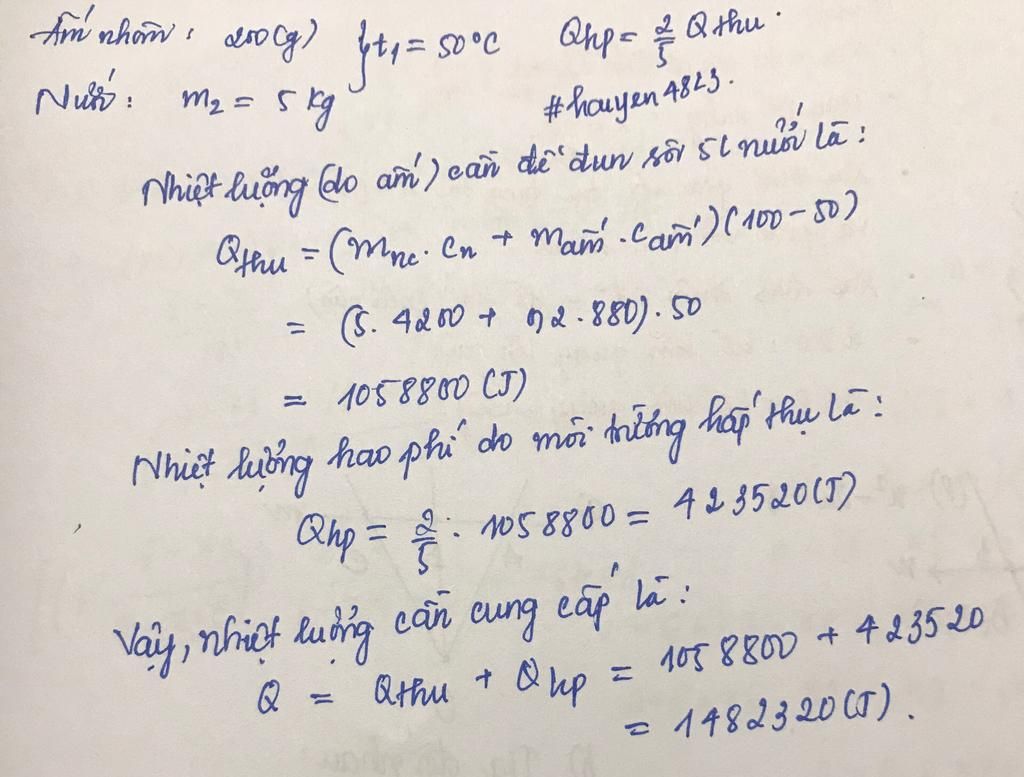 Ấm nhôm: 200(g) } t₁ = 50°C Qhp = 2/5 Qthu.
Nước: m₂ = 5 kg #hauyen4823.
Nhiệt lượng (do ấm) cần để đun sôi 5l nước là:
Qthu = (mnc. cn + mấm. cấm)(100 - 50)
= (5. 4200 + 0,2. 880). 50
= 1058800 (J)
Nhiệt lượng hao phí do môi trường hấp thụ là:
Qhp = 2/5. 1058800 = 423520(J)
Vậy, nhiệt lượng cần cung cấp là:
Q = Qthu + Qhp = 1058800 + 423520
= 1482320(J).